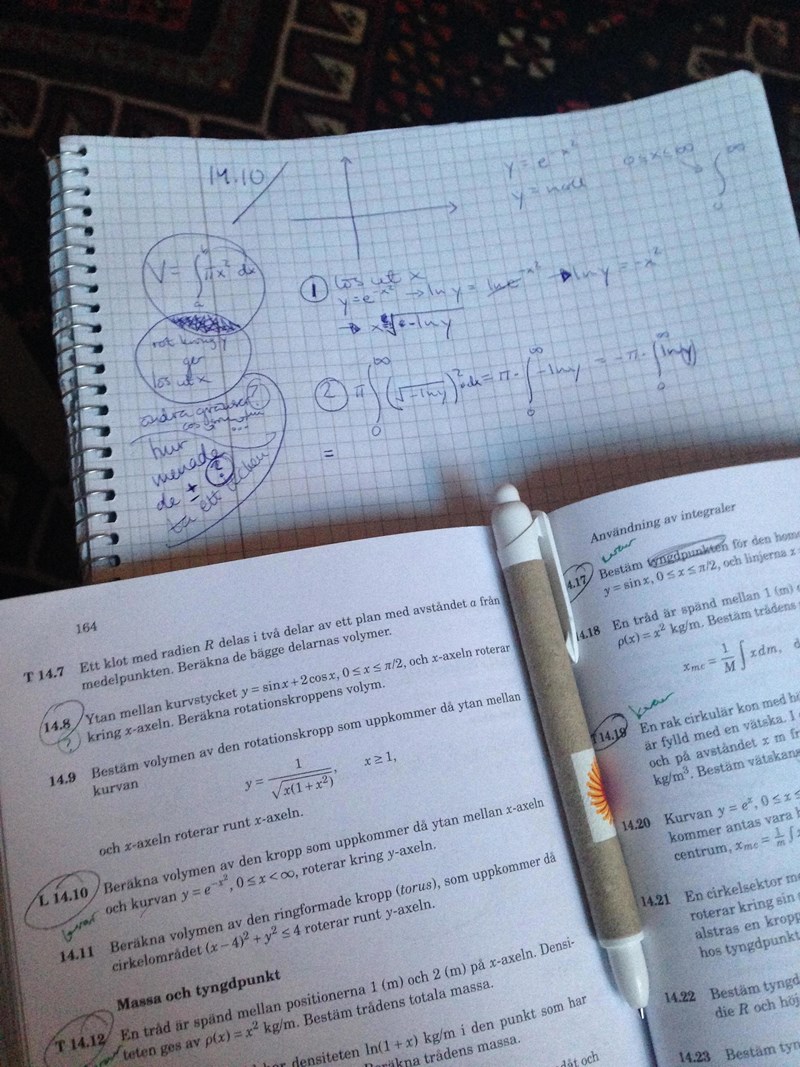 14.10
y = e^{-x^2}
0≤x≤∞
∫_0^∞
V = ∫_a^b πx² dx
rot kring y
ger
lös ut x
ändra gränser?
...
hur
menade
de ±
?
① lös ut x
y=e^{-x^2} → ln y = ln e^{-x^2} → ln y = -x²
→ x = √-ln y
② π ∫_0^∞ (√-ln y)² = π · ∫_0^∞ -ln y = -π · ∫_0^∞ ln y
=
164
T 14.7 Ett klot med radien R delas i två delar av ett plan med avståndet a från
medelpunkten. Beräkna de bägge delarnas volymer.
14.8 Ytan mellan kurvstycket y = sin x + 2 cos x, 0 ≤ x ≤ π/2, och x-axeln roterar
kring x-axeln. Beräkna rotationskroppens volym.
?
14.9 Bestäm volymen av den rotationskropp som uppkommer då ytan mellan
kurvan
y = 1/√(x(1 + x²)), x ≥ 1,
och x-axeln roterar runt x-axeln.
L 14.10 Beräkna volymen av den kropp som uppkommer då ytan mellan x-axeln
och kurvan y = e^{-x^2}, 0 ≤ x < ∞, roterar kring y-axeln.
14.11 Beräkna volymen av den ringformade kropp (torus), som uppkommer då
cirkelområdet (x − 4)² + y² ≤ 4 roterar runt y-axeln.
Massa och tyngdpunkt
T 14.12 En tråd är spänd mellan positionerna 1 (m) och 2 (m) på x-axeln. Densi-
teten ges av ρ(x) = x² kg/m. Bestäm trådens totala massa.
densiteten ln(1 + x) kg/m i den punkt som har
Beräkna trådens massa.
och
Användning av integraler
4.17 Bestäm tyngdpunkten för den hom
y = sin x, 0 ≤ x ≤ π/2, och linjerna x
14.18 En tråd är spänd mellan 1 (m)
ρ(x) = x² kg/m. Bestäm trådens
x_mc = 1/M ∫ x dm,
T 14.19 En rak cirkulär kon med
är fylld med en vätska.
och på avståndet x m
kg/m³. Bestäm vätskan
14.20 Kurvan y = e^x, 0 ≤ x ≤
kommer antas vara
centrum, x_mc = 1/m ∫
14.21 En cirkelsektor
roterar kring sin
alstras en kropp
hos tyngdpunkt
14.22 Bestäm tyngd
die R och höj
14.23 Bestäm tyn